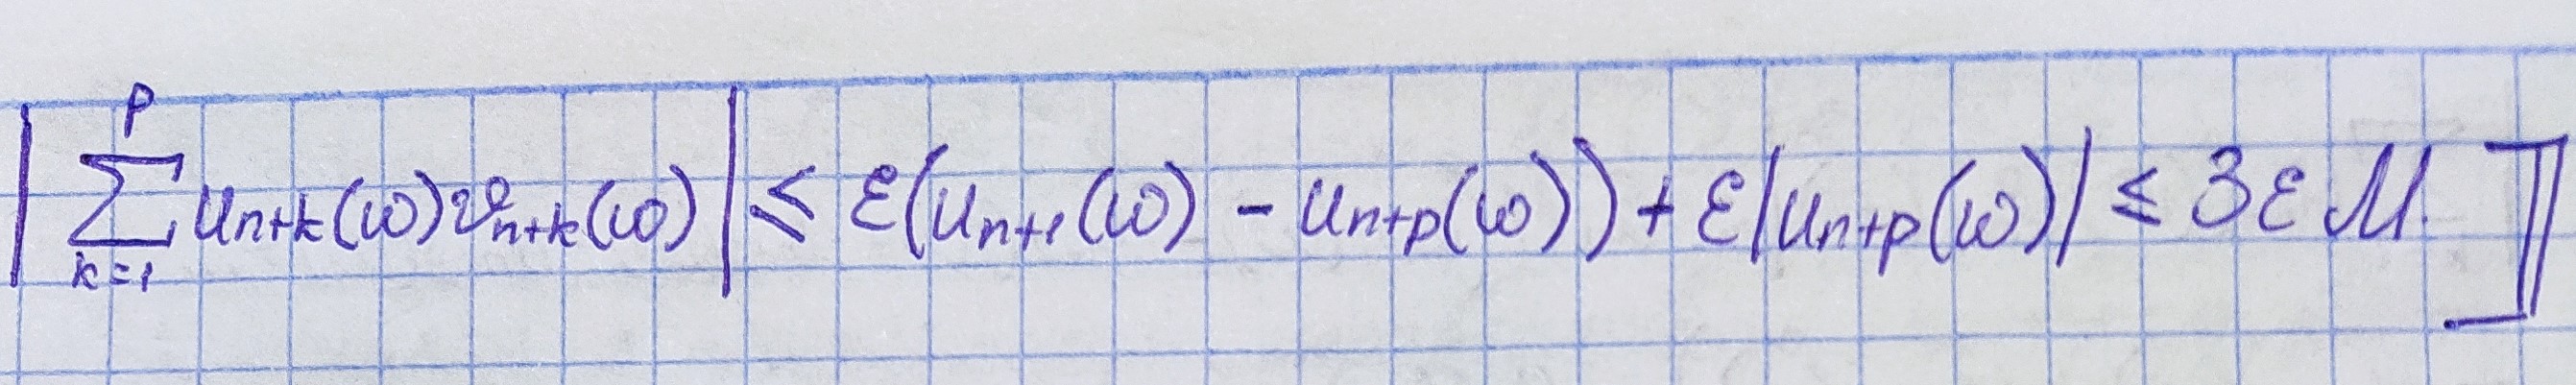 $$\left| \sum_{k=1}^{p} u_{n+k}(\omega) v_{n+k}(\omega) \right| \leq \varepsilon (u_{n+1}(\omega) - u_{n+p}(\omega)) + \varepsilon |u_{n+p}(\omega)| \leq 3 \varepsilon M. \rrbracket$$